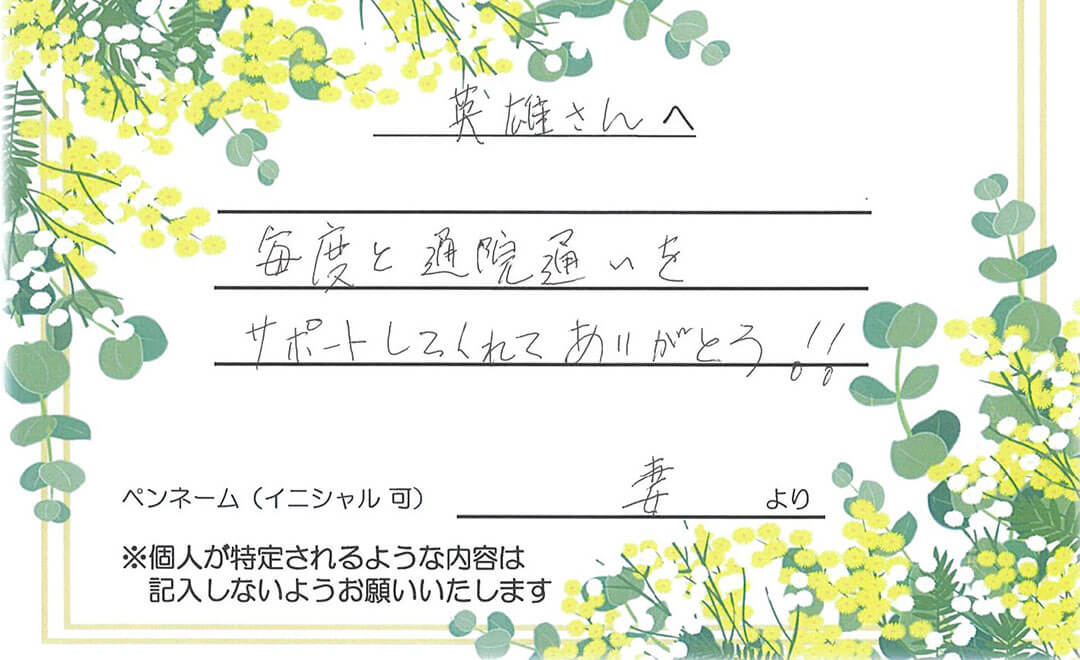 英雄さんへ
毎度と通院通いを
サポートしてくれてありがとう!!
ペンネーム（イニシャル 可） 妻 より
※個人が特定されるような内容は
記入しないようお願いいたします